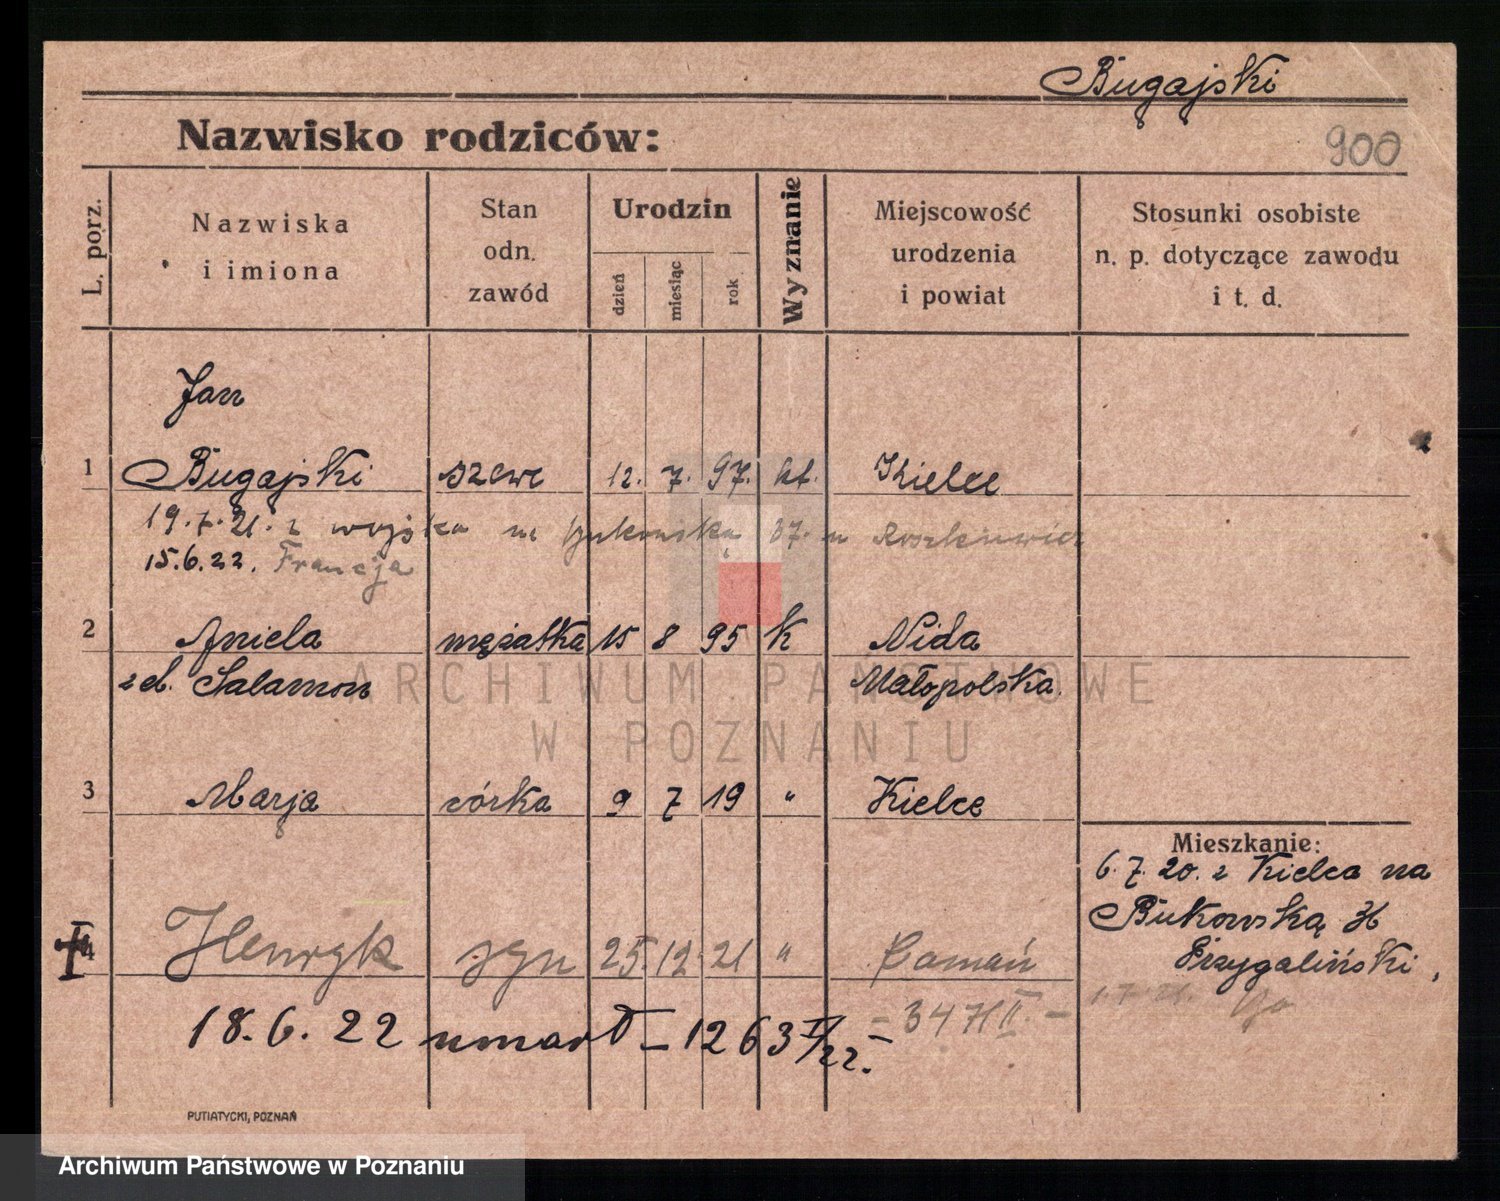 Bugajski
Nazwisko rodziców:
900
L. porz.
Nazwiska
i imiona
Stan
odn.
zawód
Urodzin
dzień
miesiąc
rok
Wyznanie
Miejscowość
urodzenia
i powiat
Stosunki osobiste
n. p. dotyczące zawodu
i t. d.
Jan
1 Bugajski szewc 12. 7. 97. kt. Kielce
19.7.21. z wojska na 37. u
15.6.22. Francja
2 Aniela mężatka 15 8 95 k Nida
z d. Salamon Małopolska.
ARCHIWUM PAŃSTWOWE
W POZNANIU
3 Marja córka 9 7 19 " Kielce
Mieszkanie:
6. 7. 20. z Kielca na
Bukowską
Przygaliński,
4 Henryk syn 25. 12 21 " Poznań
- 3471 II. -
18. 6. 22 umarł - 1263 II/22.
PUTIATYCKI, POZNAŃ
Archiwum Państwowe w Poznaniu